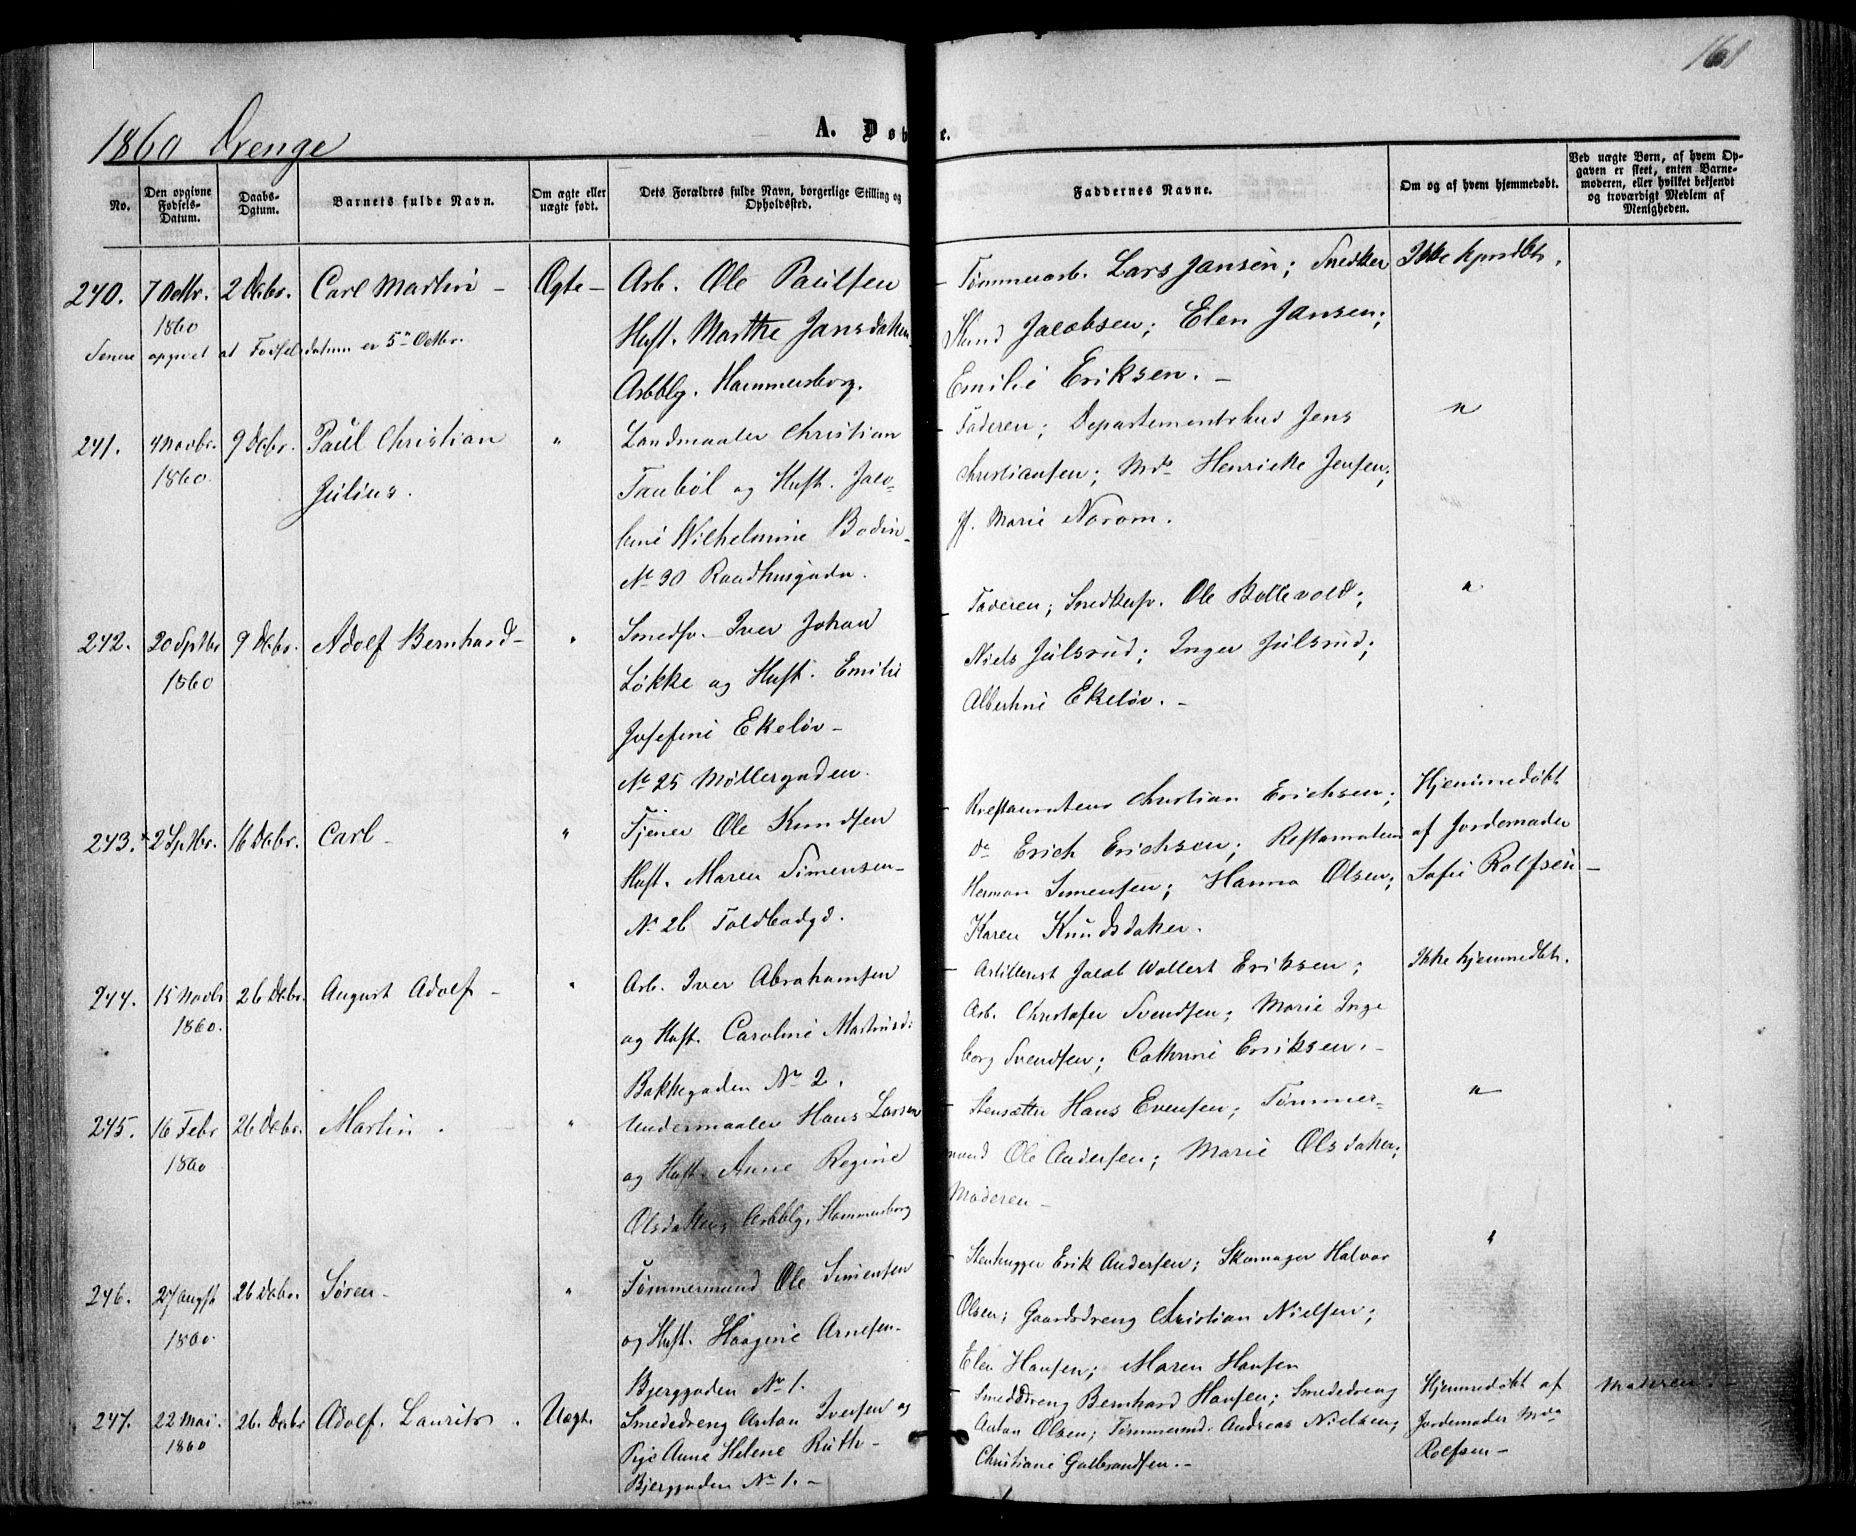 161
1860 Drenge
A. Døbte.
No.
Den opgivne Fødsels-Datum.
Daabs-Datum.
Barnets fulde Navn.
Om ægte eller uægte født.
Dets Forældres fulde Navn, borgerlige Stilling og Opholdssted.
Faddernes Navne.
Om og af hvem hjemmedøbt.
Ved uægte Børn, af hvem Opgaven er skeet, enten Barnemoderen, eller hvilket bekjendt og troværdigt Medlem af Menigheden.
240.
7 Octbr. 1860
2 Decbr.
Carl Martin -
Ægte -
Senere opgivet at Fødselsdatum er 5te Octbr.
Arb. Ole Paulsen
Hust. Marthe Jansdatter
Arbblg. Hammersborg.
Tømmerarb. Lars Jansen; Snedker
Jacobsen; Elen Jansen;
Emilie Eriksen. -
Ikke hjmdbt.
241.
4 Novbr. 1860
9 Decbr.
Paul Christian
Julius.
"
Landmaaler Christian
Taubøl og Hust. Jaco-
bine Wilhelmine Bodin -
No 30 Raadhusgaden.
Faderen; Departementsbud Jens
Christiansen; Md. Henricke Jensen;
Jf. Marie Norom.
"
242.
20 Septbr 1860
9 Decbr.
Adolf Bernhard -
"
Smedsv. Iver Johan
Løkke og Hust. Emilie
Josefine Ekeløv -
No 25 Møllergaden.
Faderen; Snedkersv. Ole Bollevold;
Niels Julsrud; Inger Julsrud;
Albertine Ekeløv. -
"
243.
2 Septbr.
16 Decbr.
Carl -
"
Tjener Ole Knudsen
Hust. Maren Simensen -
No 26 Toldbodgd.
Restaurateur Christian Erichsen;
do Erich Erichsen; Restaurateur
Herman Simensen; Hanna Olsen;
Karen Knudsdatter.
Hjemmedøbt
af Jordemoder
Sofie Rolfsen -
244.
15 Novbr 1860.
26 Decbr.
August Adolf -
"
Arb. Iver Abrahamsen
og Hust. Caroline Martinsd:
Bakkegaden No 2.
Artillerist Jacob Wollert Eriksen;
Arb. Christofer Svendsen; Marie Inge
borg Svendsen; Cathrine Eriksen. -
Ikke hjemmedbt.
245.
16 Febr 1860
26 Decbr.
Martin.
"
Undermaaler Hans Larsen
og Hust. Anne Regine
Olsdatter, Arbblg. Hammersborg
Stensætter Hans Evensen; Tømmer-
mand Ole Andersen; Marie Olsdatter;
Moderen -
"
246.
27 Augst 1860.
26 Decbr.
Søren -
"
Tømmermand Ole Simensen
og Hust. Haagine Arnesen -
Bjerggaden No 1.
Stenhugger Erik Andersen; Skomager Halvor
Olsen; Gaardsdreng Christian Nielsen;
Elen Hansen; Maren Hansen
"
247.
22 Mai. 1860
26. Decbr
Adolf. Laurits.
Uægt.
Smededreng Anton Iversen og
Pige Anne Helene Ruth -
Bjerggaden No 1. -
Smeddreng Bernhard Hansen; Smededreng
Anton Olsen; Tømmermd. Andreas Nielsen;
Christiane Gulbrandsen. -
Hjemmedøbt af
Jordemoder Mda
Rolfsen -
Moderen. -